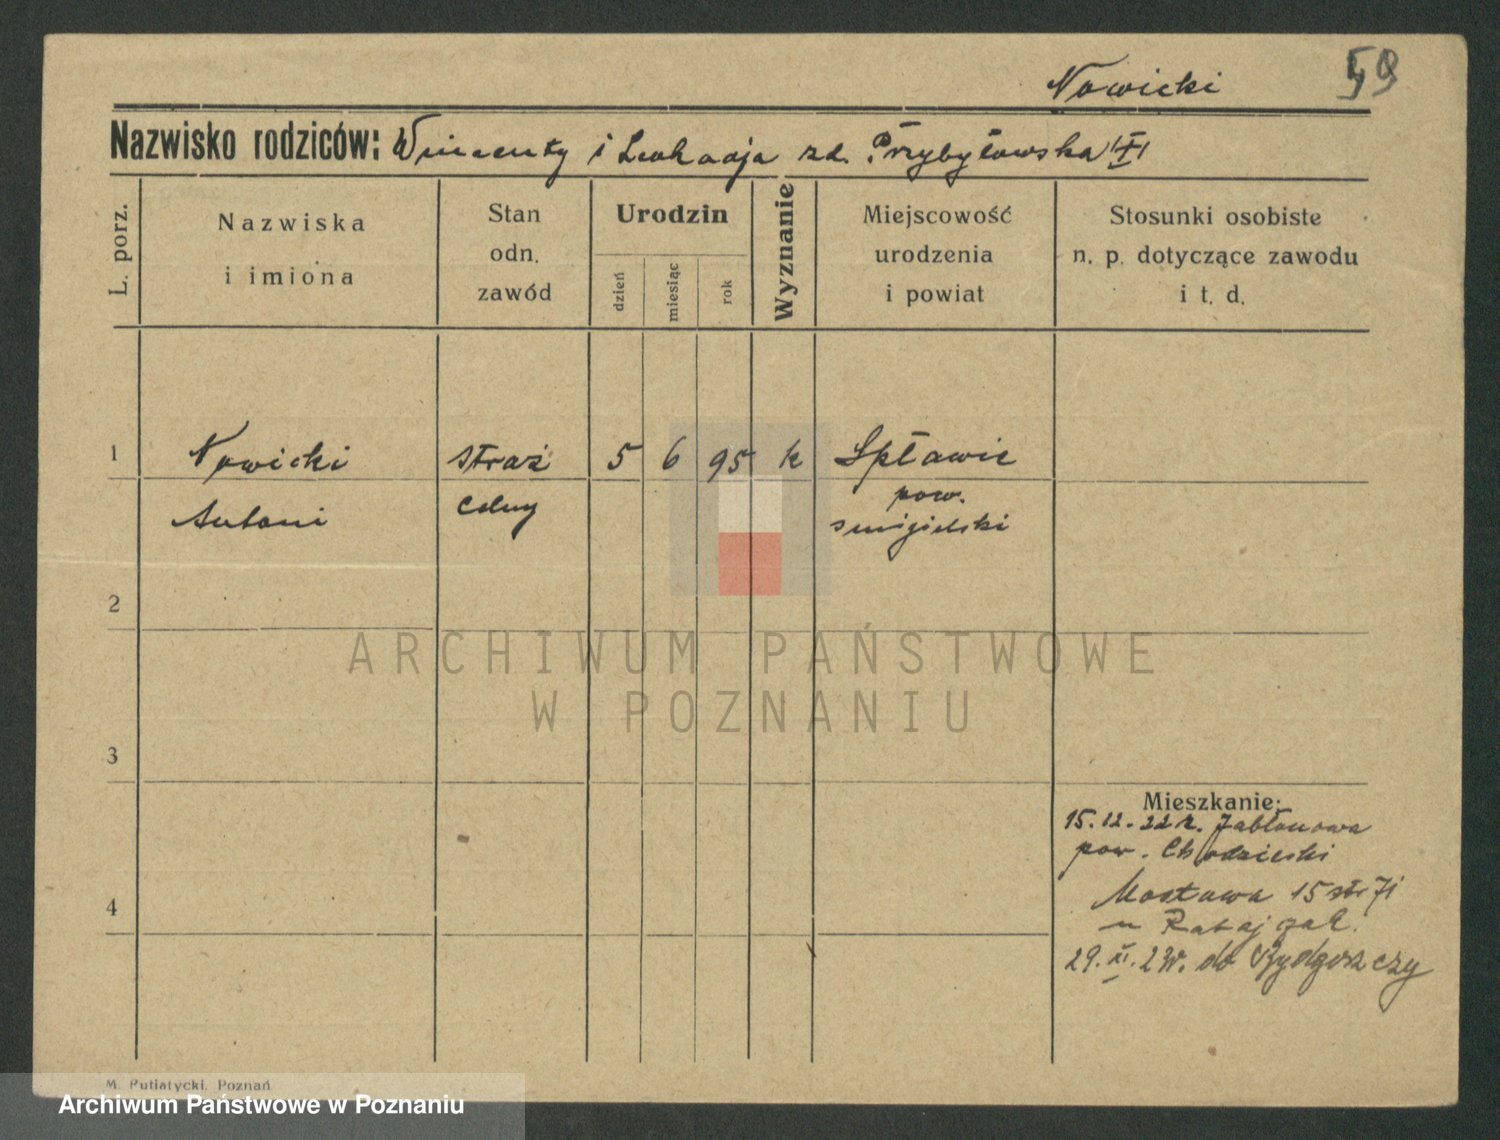 Nowicki
59
Nazwisko rodziców: Wincenty i Leokadja zd. Przybyłowska
L. porz.
Nazwiska
i imiona
Stan
odn.
zawód
Urodzin
dzień
miesiąc
rok
Wyznanie
Miejscowość
urodzenia
i powiat
Stosunki osobiste
n. p. dotyczące zawodu
i t. d.
1
Nowicki straż 5 6 95 k Spławie
pow.
Antoni celny smigielski
2
ARCHIWUM PAŃSTWOWE
W POZNANIU
3
Mieszkanie:
15.12.22 r. Jabłonowa
pow. Chodzieski
4
Mostowa 15
Ratajczak.
29. XI. do Bydgoszczy
M. Putiatycki, Poznań
Archiwum Państwowe w Poznaniu